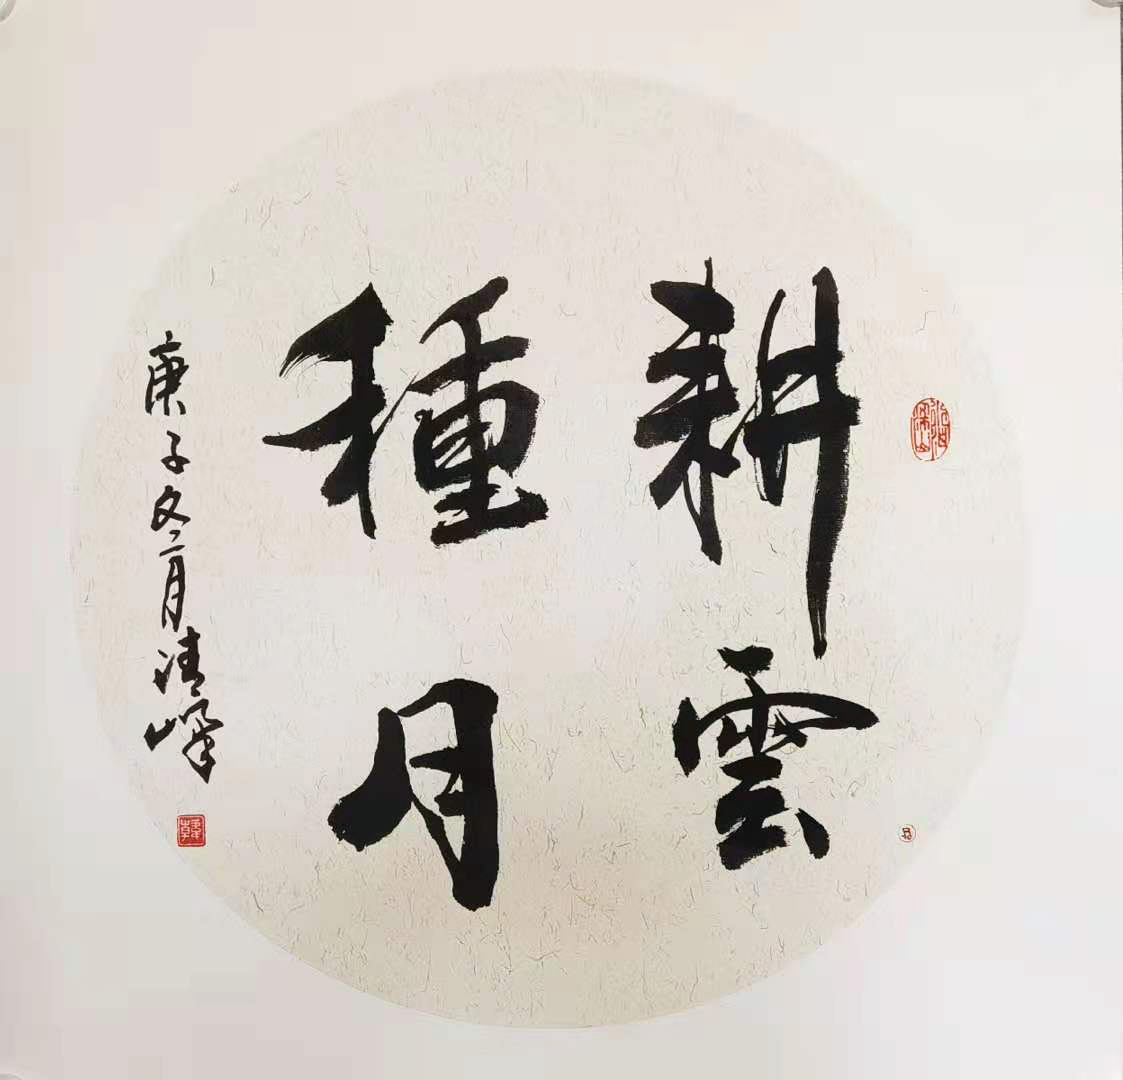 耕雲
種月
庚子冬月清峰